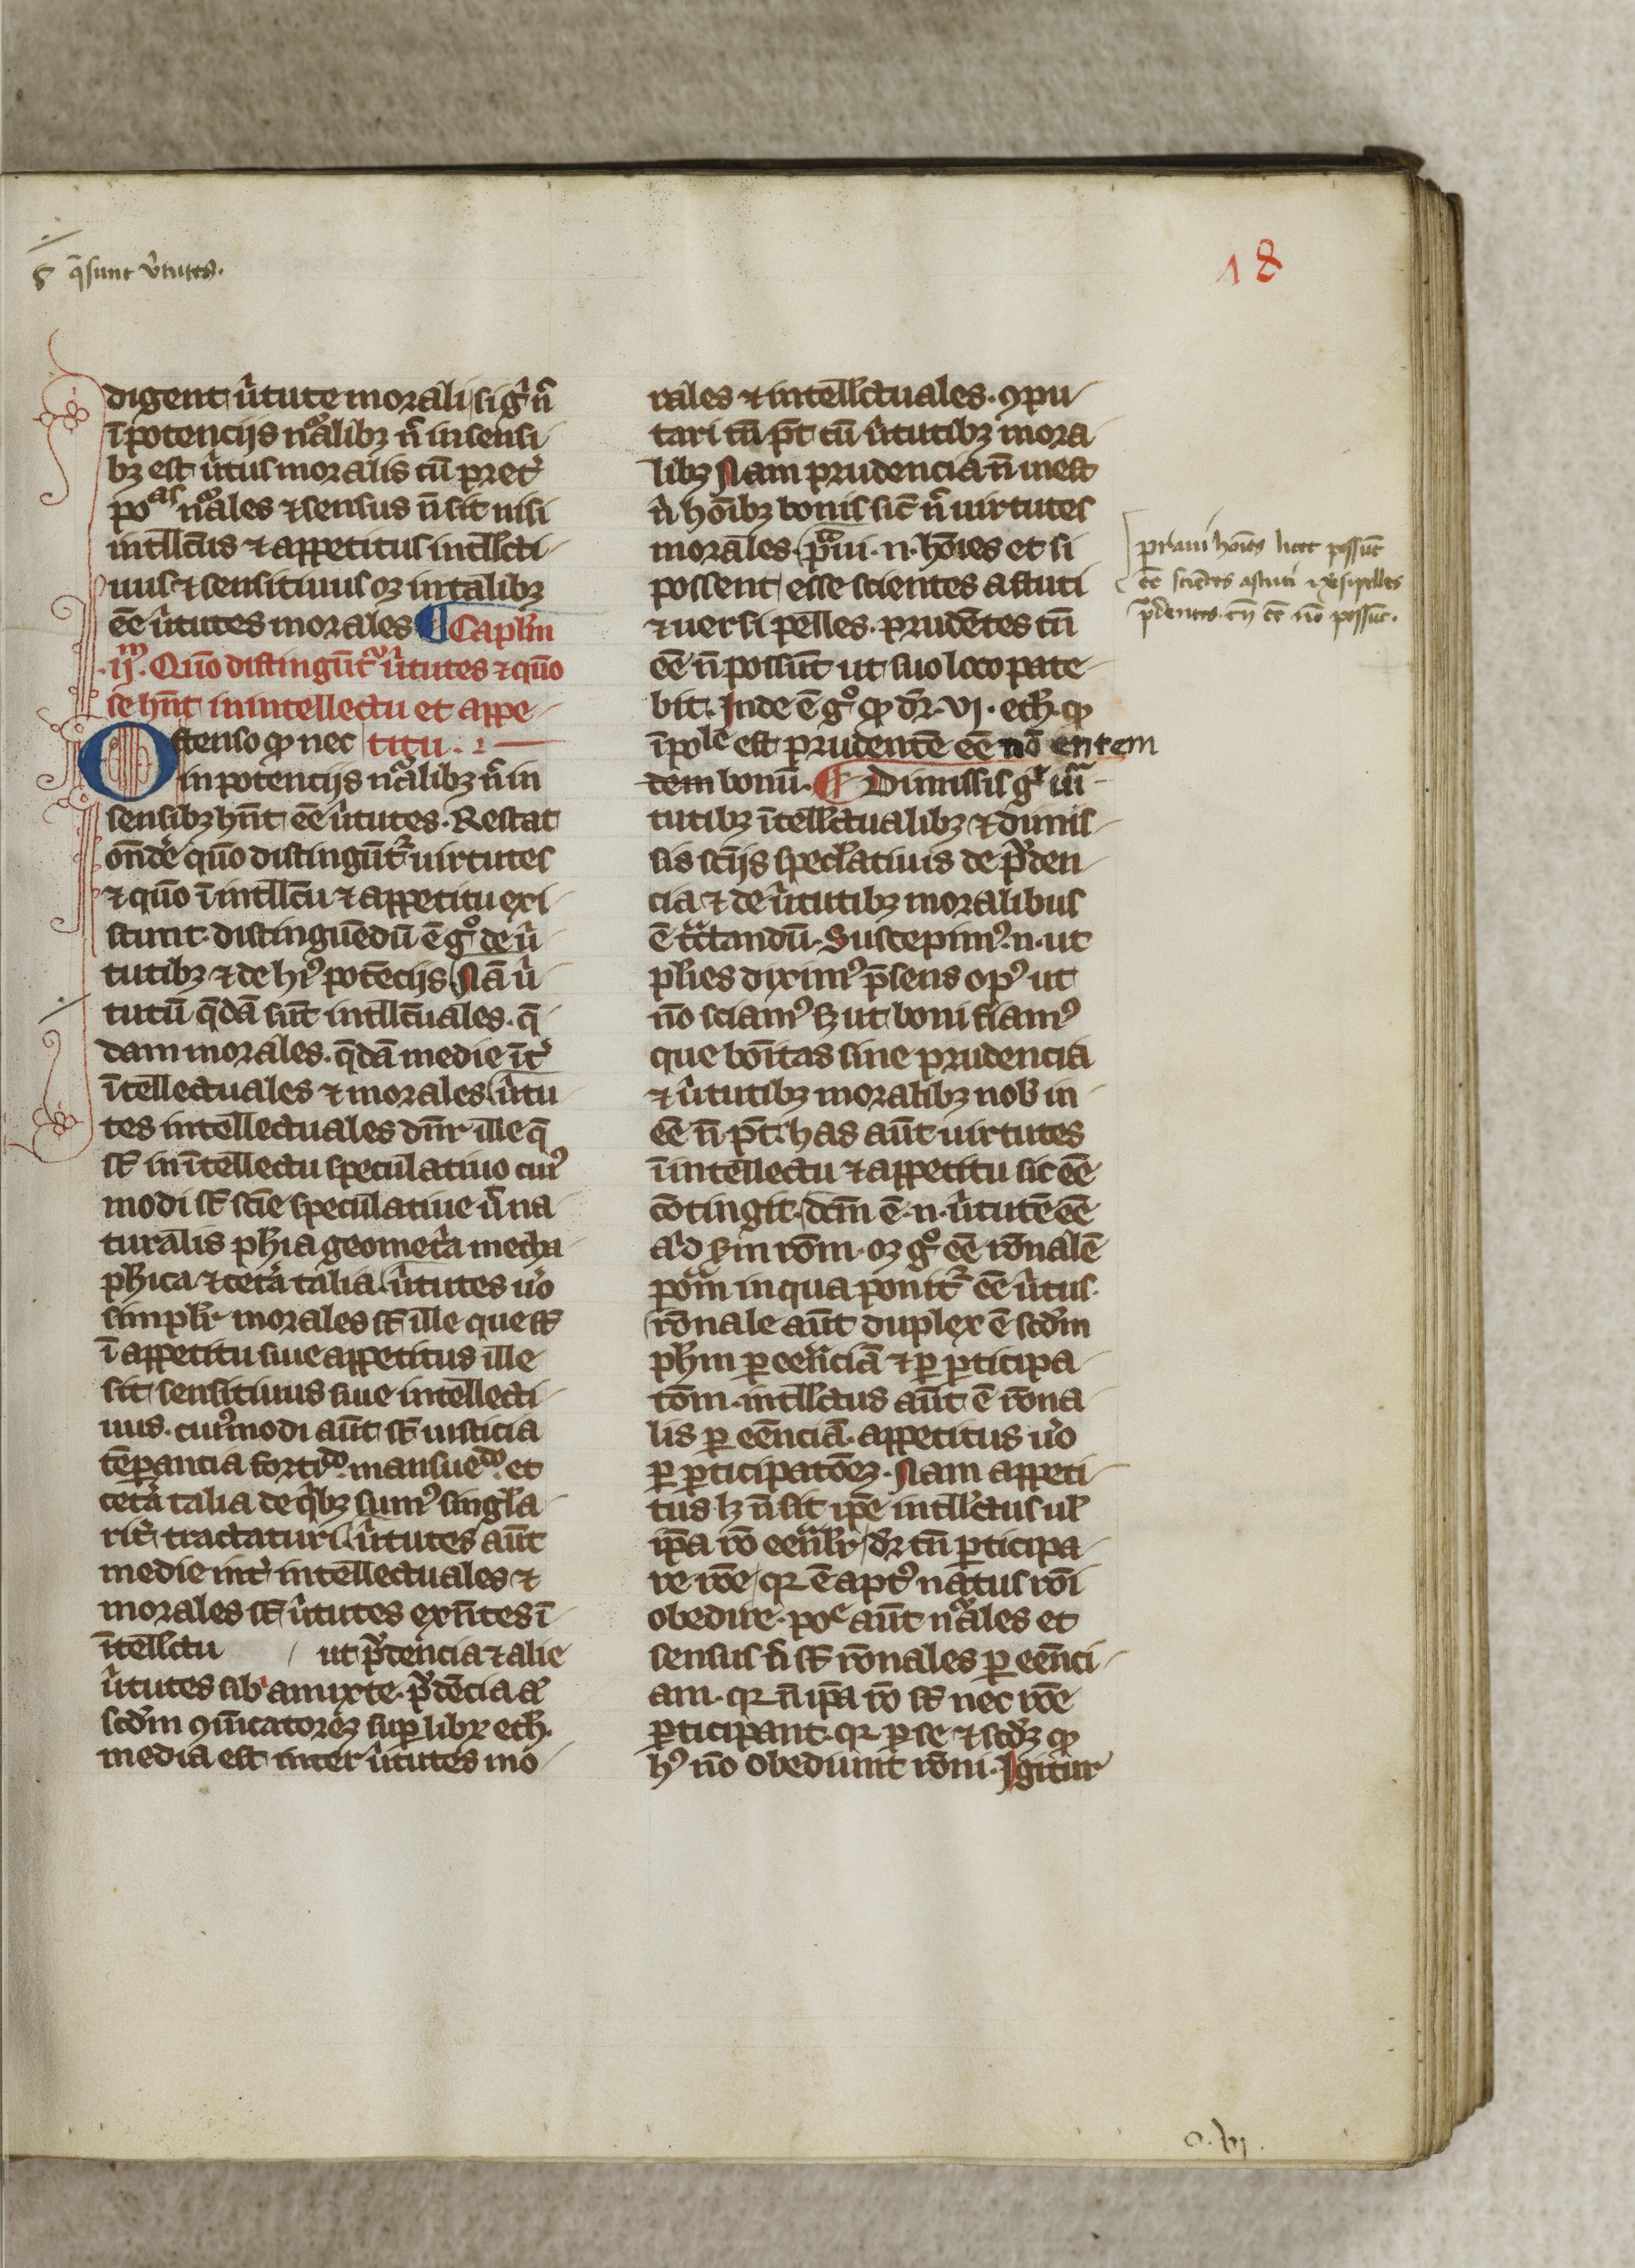 q̄ sunt v̓tutes.
18
digent v̓tute morali / si gͥ n̄
ī potencijs nᵒalibꝫ n̄ in sensi-
bꝫ est v̓tus moralis cū pret̓
poᵃˢ nᵒales ⁊ sensus n̄ sit nisi
intll̄cus ⁊ appetitus intll̄cti-
uus ⁊ sensitiuus oꝫ in talibꝫ
ēe v̓tutes morales ¶ Capl̄m
.ij.ᵐ Quō distingūt᷑ v̓tutes ⁊ quō
se hn̄t in intellectu et appe-
titu
Ostenso ꝙ nec
in potencijs nᵃalibꝫ n̄ in
sensibꝫ hn̄t ēe v̓tutes. Restat
on̄de quō distingūt᷑ uirtutes
⁊ quō ī intll̄cu ⁊ appetitu exi-
stunt. distinguēdū ē gᵒ de v̓-
tutibꝫ ⁊ de hꝰ potēcijs Nā v̓-
tutū q̄dā sūt intll̄cuales. q̄-
dam morales. q̄dā medie īt̓
ītellectuales ⁊ morales v̓tu-
tes intellectuales dn̄r ille q̄
st̄ in ītellectu speculatiuo cuiꝰ
modi st̄ scīe speculatiue v̓ na-
turalis ph̄ia geomet̓a metha-
ph̄ica ⁊ cet̓a talia v̓tutes v̓o
simpl̄r morales st̄ ille que st̄
ī appetitu siue appetitus ille
sit sensitiuus siue intellecti-
uus. cuiꝰmodi aūt st̄ iusticia
tēꝑancia fortiᵈᵒ. mansueᵈᵒ. et
cet̓a talia de qͥbꝫ sumꝰ singl̄a-
rit̓ tractaturi v̓tutes aūt
medie int̓ intellectuales ⁊
morales st̄ v̓tutes exn̄tes ī
ītell̄ctu ut pᷣdencia ⁊ alie
v̓tutes sibͥ amixte. pᷣdēcia .n.
scd̄m ꝯm̄catorēꝫ suꝑ libꝝ eth.
media est inter v̓tutes mo-
rales ⁊ intell̄ctuales. ꝯpu-
tari tn̄ pt̄ cū v̓tutibꝫ mora-
libꝫ Nam prudencia n̄ inest
n̓ hoīibꝫ bonis sic̄ n̄ virtutes
morales. pᵃui .n. hoīes et si
possent esse scientes astuti
⁊ uersipelles. prudētes tn̄
ēe n̄ possūt ut suo loco pate-
bit. Inde ē gᵒ ꝙ dr̄ .vj. eth. ꝙ
īpoˡᵉ est prudentē ēe nō entem
dem bonū. ¶ Dimissis gͥ uir-
tutibꝫ ītell̄ctualibꝫ ⁊ dimis-
sis scīis specl̄atiuis de pᷣden-
cia ⁊ de v̓tutibꝫ moralibus
ē tᵃctandū. Suscepimꝰ .n. ut
pl̄ies diximꝰ pn̄sens opꝰ ut
nō sciamꝰ sꝫ ut boni fiamꝰ
que bon̄tas sine prudencia
⁊ v̓tutibꝫ moralibꝫ nob̄ in-
ēe n̄ pt̄. has aūt uirtutes
ī intellectu ⁊ appetitu sic ēe
cōtingit. dcm̄ ē .n. v̓tutē ēe
aͥd sm̄ rōm. oꝫ gᵒ ēe rōnalē
poᵃm in qua ponit᷑ ēe v̓tus.
rōnale aūt duplex ē scd̄m
ph̄m ꝑ eēnciā ⁊ ꝑ ꝑticipa-
tōm. intll̄ctus aūt ē rōna-
lis ꝑ eēnciā. appetitus v̓o
ꝑ ꝑticipatōeꝫ. Nam appeti-
tus lꝫ n̄ sit ip̄e intll̄ctus ul̄
ip̄a rō eēnᵃlr / dr̄ tn̄ ꝑticipa-
re rōe / qꝛ ē aptꝰ natus rōi
obedire. poᵉ aūt nᵃales et
sensus n̄ st̄ rōnales ꝑ eēnci-
am. qꝛ n̄ ip̄a rō st̄ nec rōe
ꝑticipant. qꝛ ꝑ se ⁊ scd̄ꝫ ꝙ
hꝰ nō obediunt rōni. Igitur
praui hoīes licet possūt
ēe sciētes astuti ⁊ v̓sipelles
pᷣdentes. tn̄ ēe nō possūt.